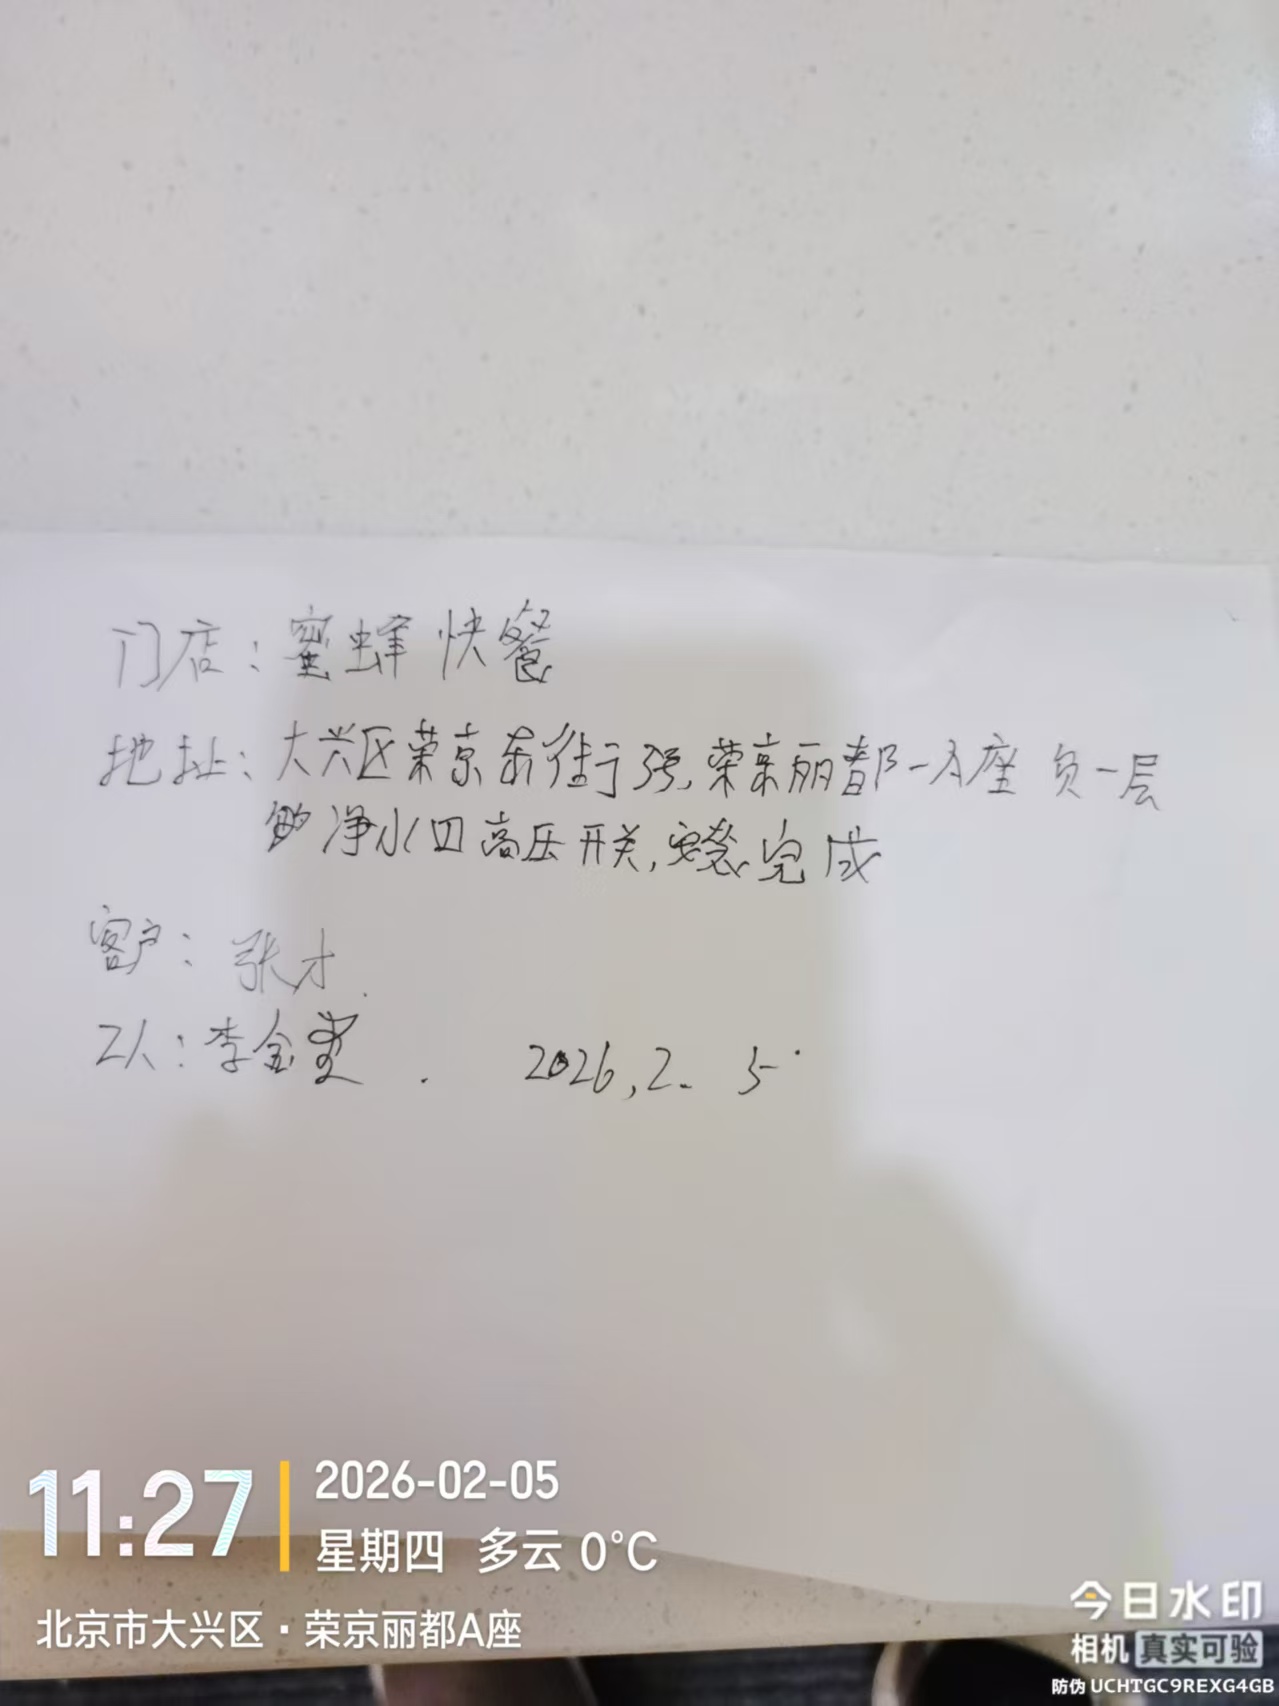 门店：蜜蜂快餐
地址：大兴区荣京东街3号，荣京丽都-A座负一层
净水 高压开关，安装完成
客户：张才
工人：李金 2026，2. 5
11:27
2026-02-05
星期四 多云 0℃
北京市大兴区·荣京丽都A座
今日水印
相机 真实可验
防伪 UCHTGC9REXG4GB